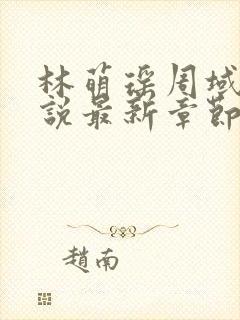 林萌瑤周域
說最新章節
趙南